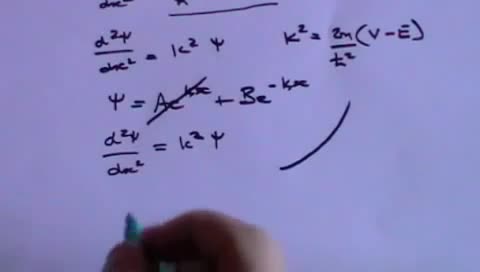 dx²
d²ψ/dx² = k² ψ k² = 2m/ħ² (V - E)
ψ = Ae^kx + Be^-kx
d²ψ/dx² = k² ψ